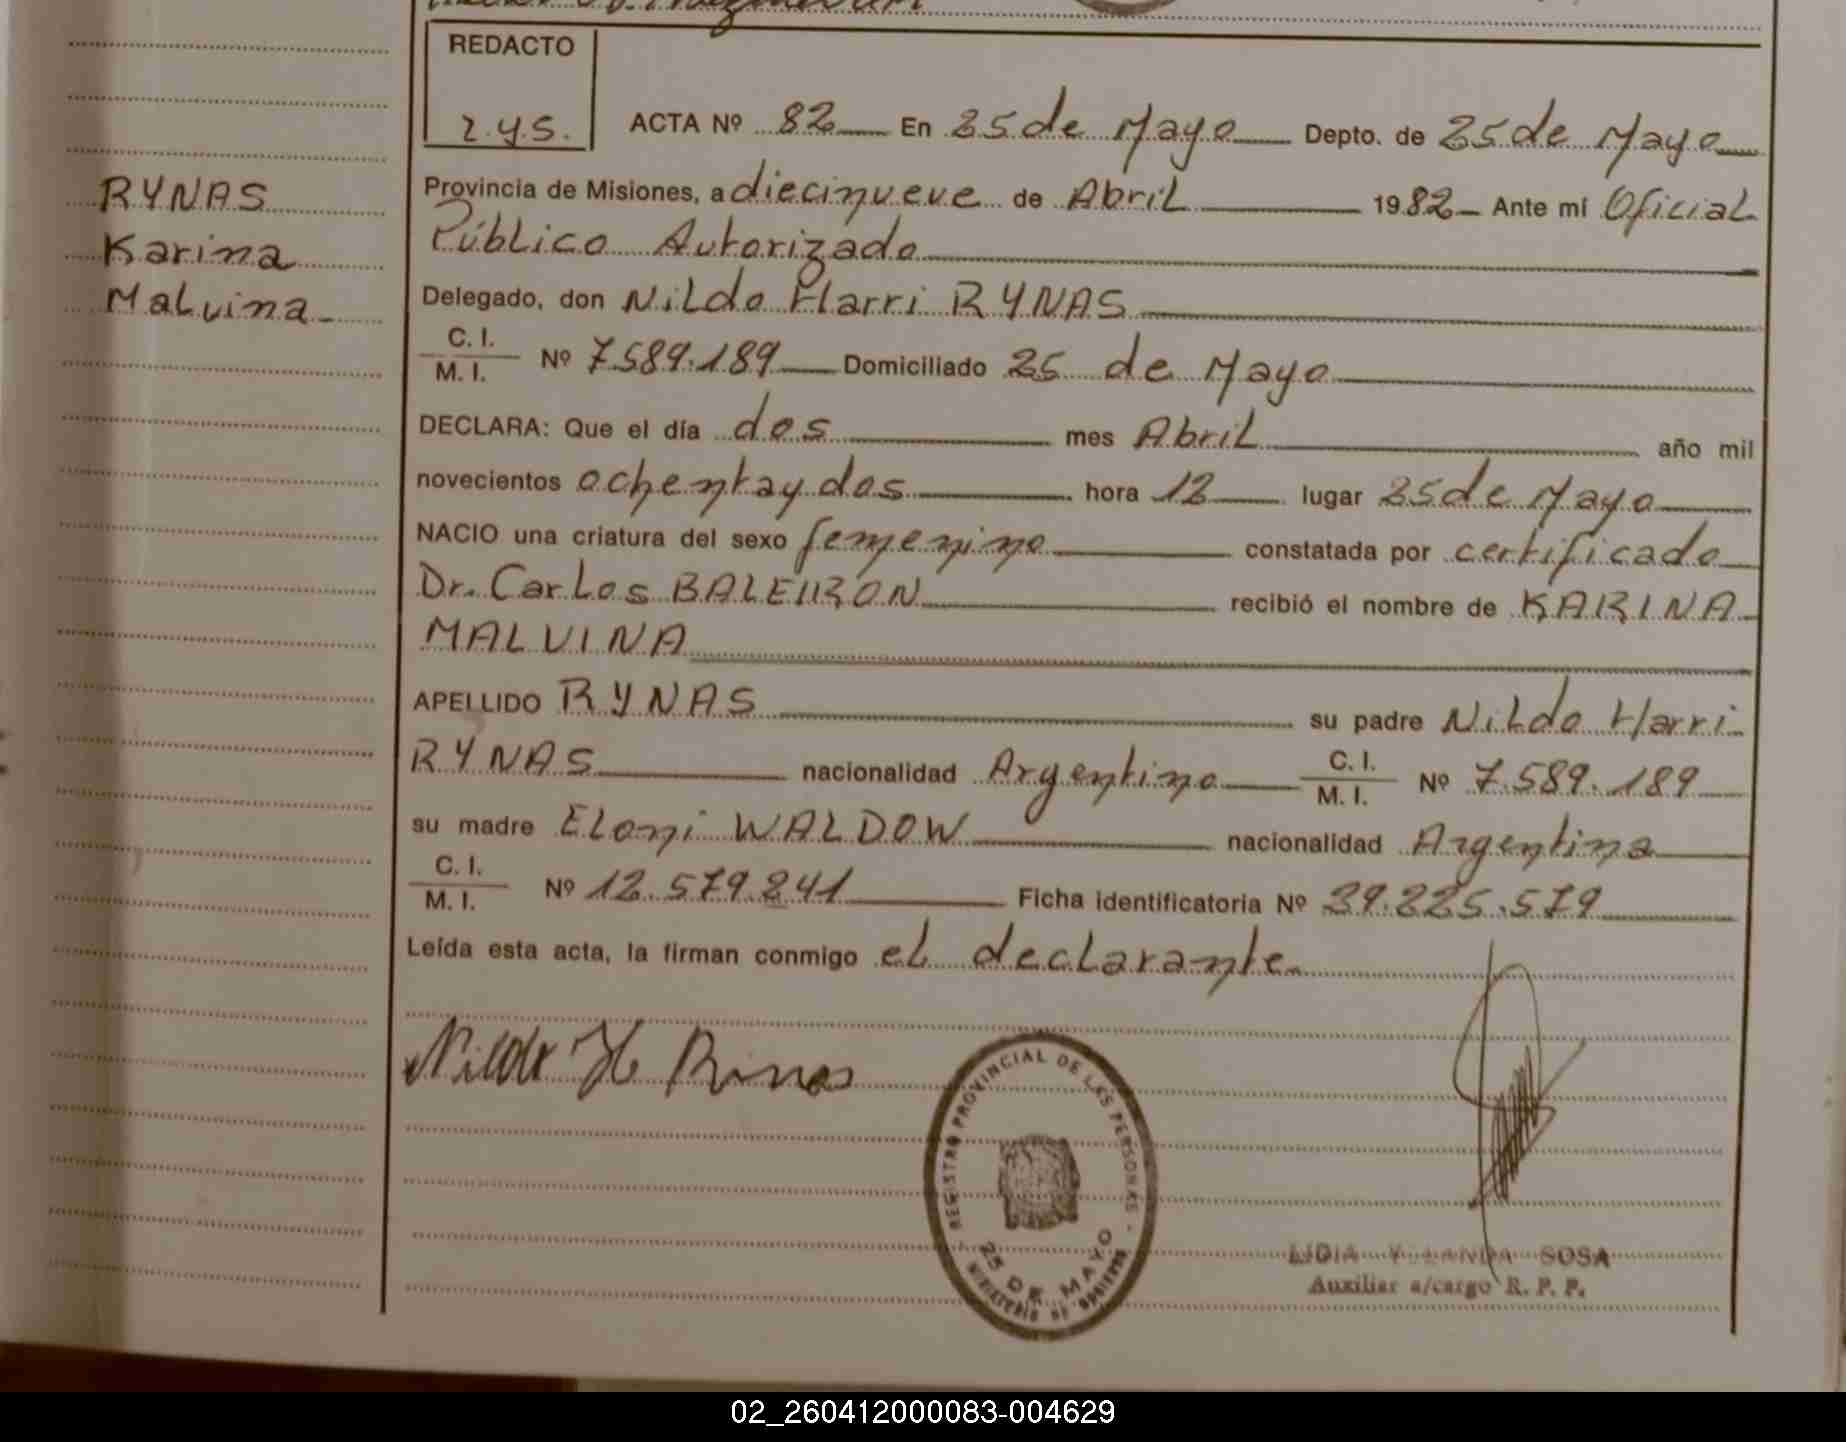 REDACTO
L.Y.S.
ACTA Nº 82 En 25 de Mayo Depto. de 25 de Mayo
RYNAS
Karina
Malvina
Provincia de Misiones, a diecinueve de Abril 1982 Ante mí Oficial
Público Autorizado
Delegado, don Nildo Harri RYNAS
C. I.
M. I. Nº 7.589.189 Domiciliado 25 de Mayo
DECLARA: Que el día dos mes Abril año mil
novecientos ochentaydos hora 12 lugar 25 de Mayo
NACIO una criatura del sexo femenino constatada por certificado
Dr. Carlos BALEIRON recibió el nombre de KARINA
MALVINA
APELLIDO RYNAS su padre Nildo Harri
RYNAS nacionalidad Argentino C. I. M. I. Nº 7.589.189
su madre Eloni WALDOW nacionalidad Argentina
C. I.
M. I. Nº 12.579.241 Ficha identificatoria Nº 29.225.579
Leída esta acta, la firman conmigo el declarante
Nildo H Rinas
REGISTRO PROVINCIAL DE LAS PERSONAS
25 DE MAYO
MINISTERIO DE GOBIERNO
LIDIA Y LANDA SOSA
Auxiliar a/cargo R. P. P.
02_260412000083-004629